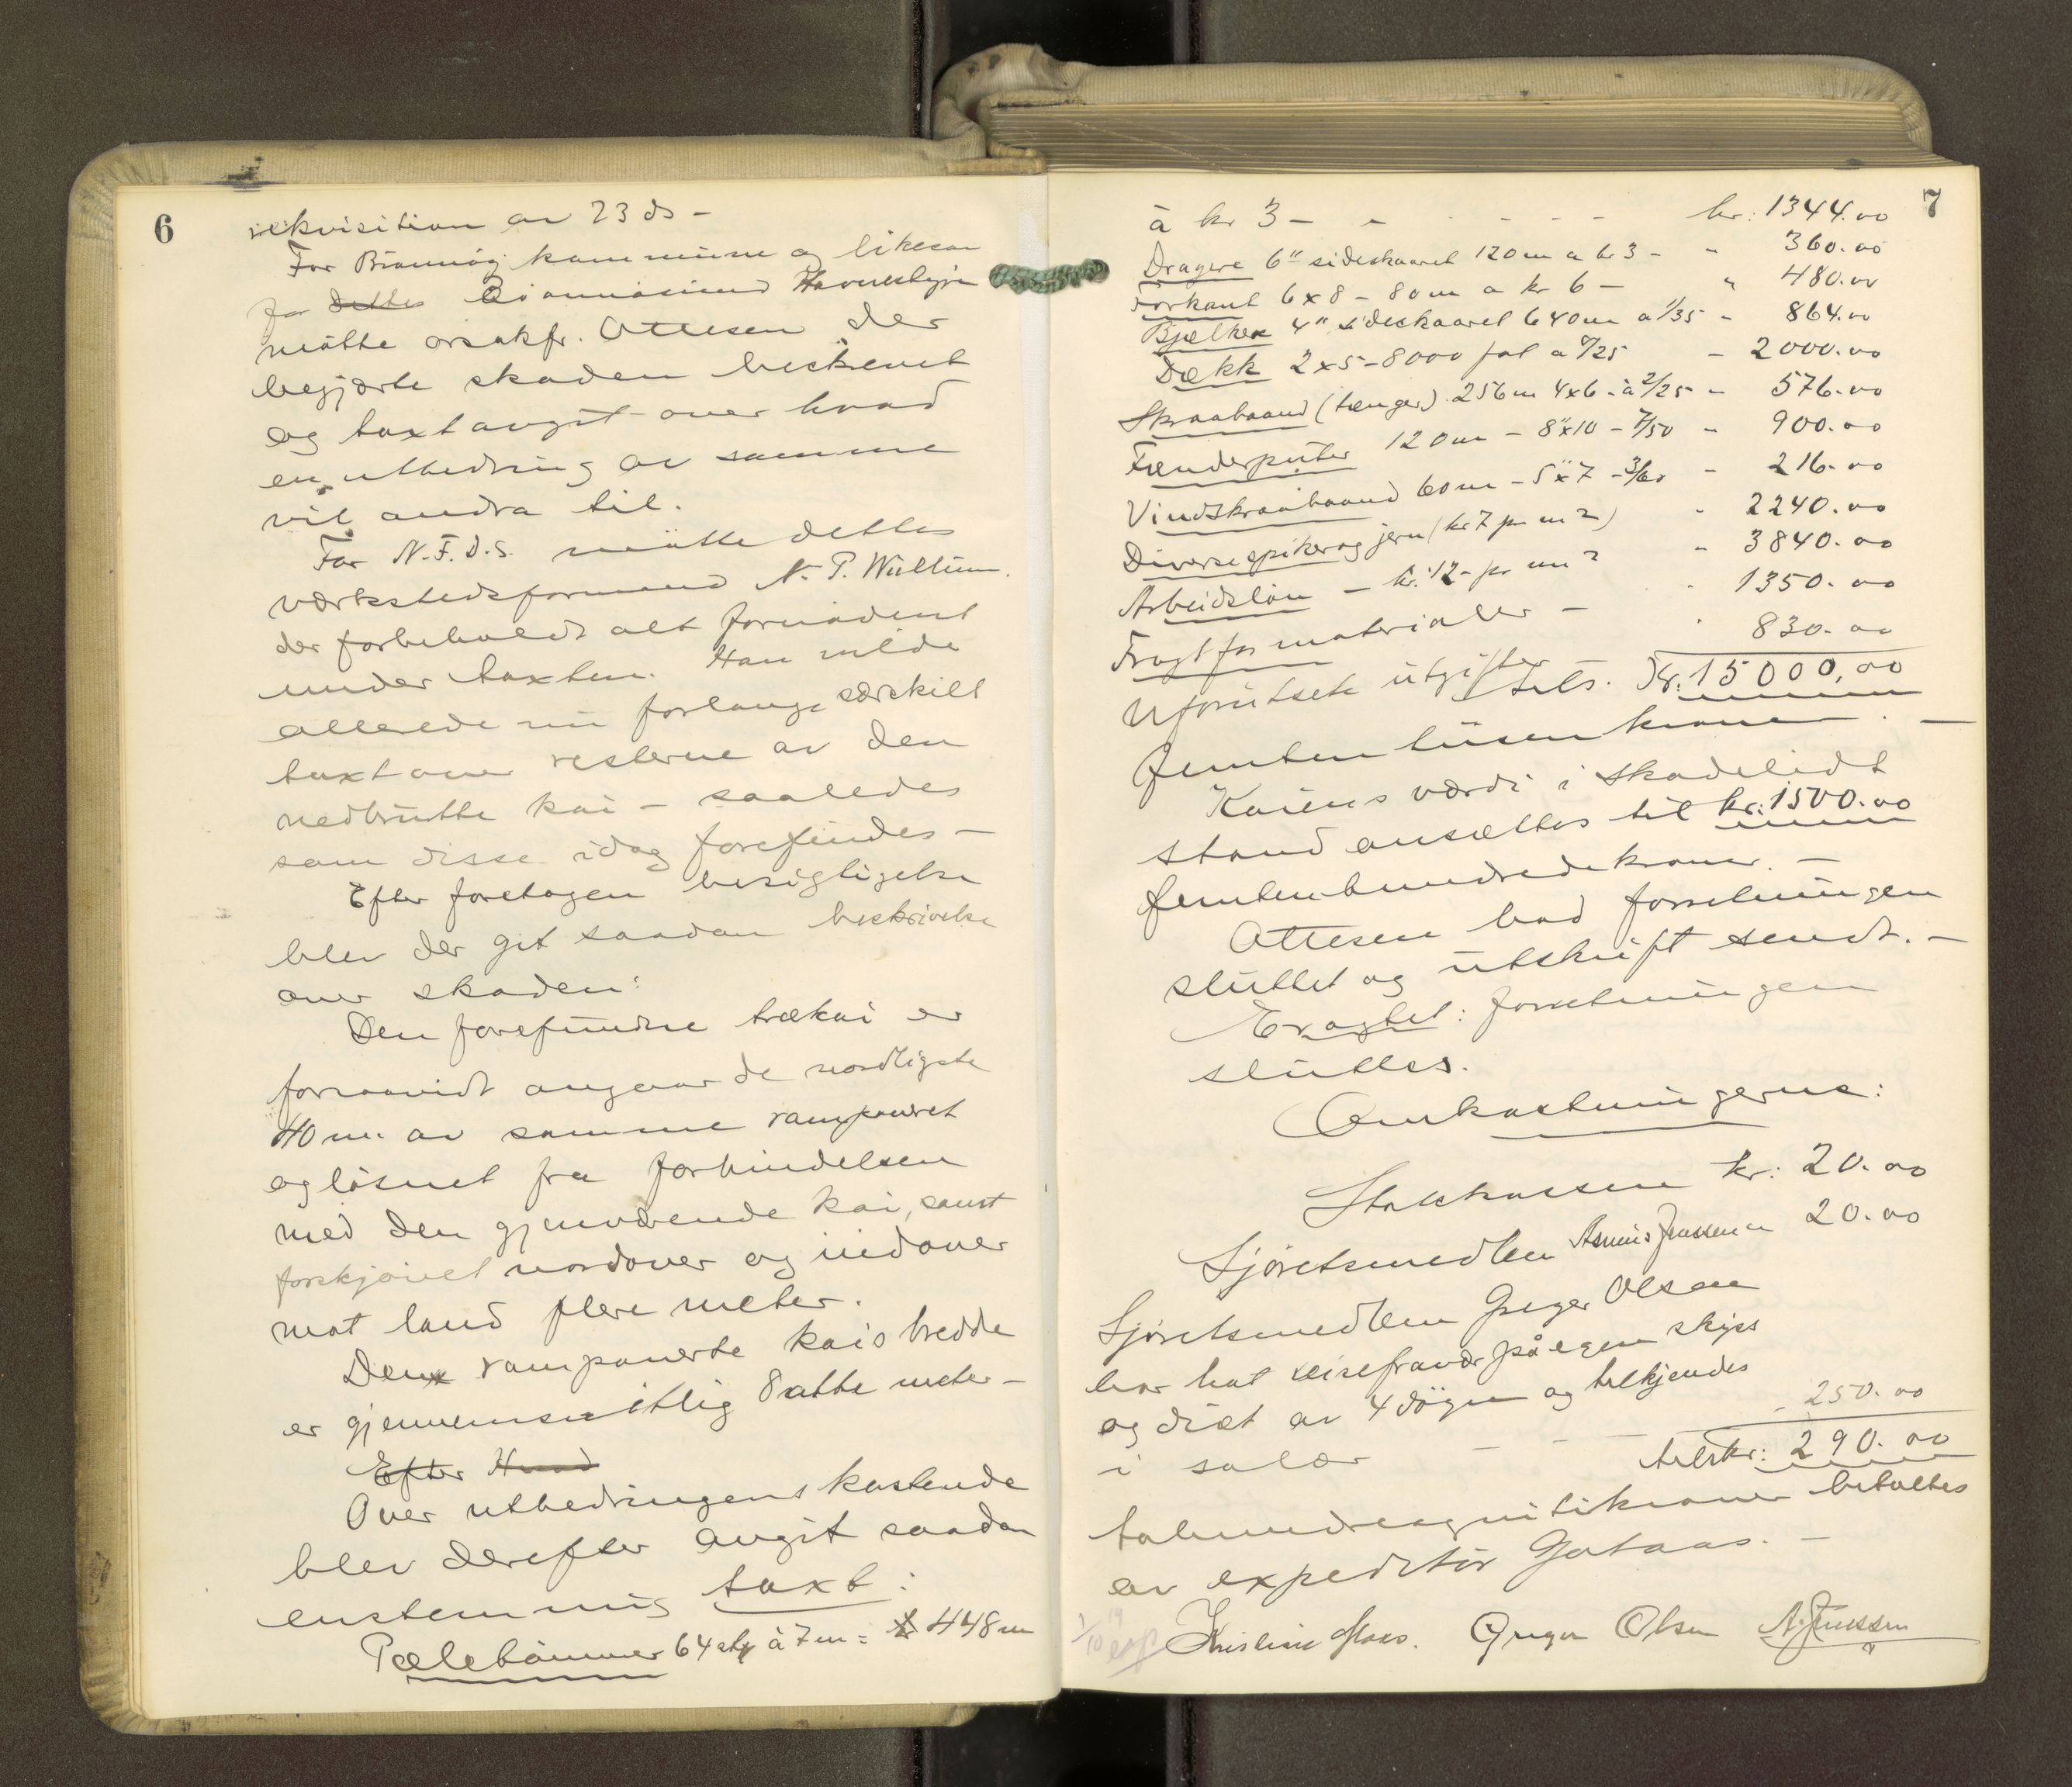 6
rekvisition av 23 ds -
For Brønnøy kommune og likesom
for dettes Brønnøisund Havnestyre
møtte orsakfr. Ottesen der
begjærte skaden beskrevet
og taxt avgit over hvad
en utbedring av samme
vil andra til.
For N.F.D.S. møtte dettes
verkstedsformand N. P.
der forbeholdt alt fornødent
under taxten. Han vilde
allerede nu forlange særskilt
taxt over resterne av den
nedbrutte kai - saaledes
som disse idag forefindes -
Efter foretagen besigtigelse
blev der git saadan beskrivelse
over skaden:
Den forefundne trækai er
forsaavidt angaar de nordligste
40 m. av samme ramponeret
og løsnet fra forbindelsen
med den gjenværende kai, samt
forskjøvet nordover og indover
mot land flere meter.
Den ramponerte kais bredde
er gjennemsnitlig 8 otte meter -
Efter Hvad
Over utbedringens kostende
blev derefter avgit saadan
enstemmig taxt:
Pæletømmer 64 stk à 7 m = 448 m
7
à kr 3 - - - - - - kr: 1344.00
Dragere 6" sideskaaret 120 m a kr 3 - " 360.00
Forkant 6x8 - 80 m a kr 6 - " 480.00
Bjælker 4" sideskaaret 640 m a 1/35 " 864.00
Dækk 2x5 - 8000 fot a 0/25 - 2000.00
Skraabaand (tænger) 256 m 4x6 - à 2/25 - 576.00
Fænderputer 120 m - 8"x10 - 7/50 - 900.00
Vindskraabaand 60 m - 5"x7 - 3/60 - 216.00
Diverse spiker og jern (kr 7 pr m2) " 2240.00
Arbeidsløn - kr. 12 - pr m2 " 3840.00
Fragt for materialer - " 1350.00
Uforutsete utgifter " 830.00
Tils. Kr. 15000,00
femten tusen kroner. -
Kaiens værdi i skadelidt
stand ansættes til kr: 1500.00
femtenhundrede kroner. -
Ottesen bad forretningen
sluttet og utskrift sendt. -
Eragtet: forretningen
sluttes.
Omkostningerne:
Statskassen kr: 20.00
Sjøretsmedlem Asmus Jenssen " 20.00
Sjøretsmedlem Greger Olsen
har hat reisefravær på egen skyss
og diæt av 4 døgn og tilkjendes
i salær - - - - 250.00
tils kr: 290.00
tohundreognitikroner betaltes
av expeditør Gutaas. -
Greger Olsen A. Jenssen